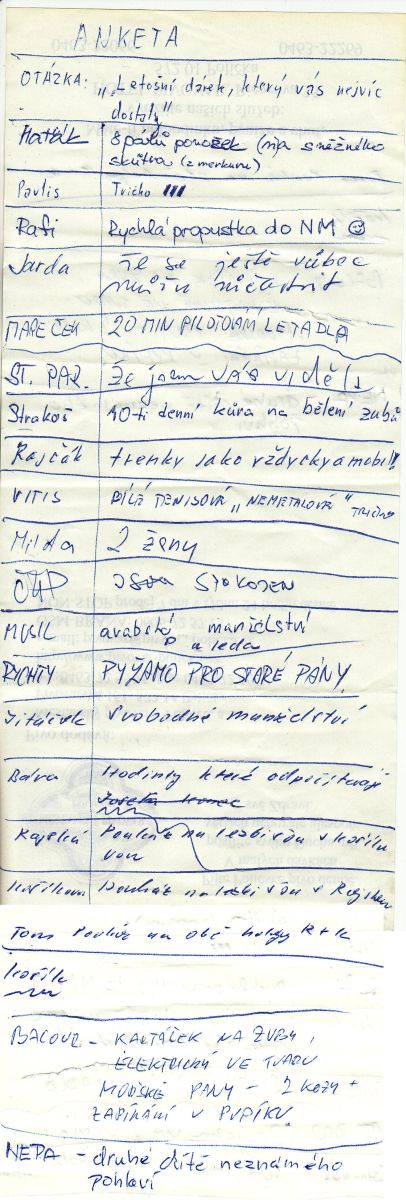 ANKETA
OTÁZKA: "Letošní dárek, který vás nejvíc
dostal"
Maťák 8 párů ponožek (na sněžného
skútra (z merkuru)
Pavlis Tričko III
Rafi Rychlá propustka do NM ☺
Jarda že se ještě vůbec
můžu zúčastnit
MAREČEK 20 MIN PILOTOVÁNÍ LETADLA
ST. PAR. Že jsem VÁS viděl
Strakoš 10-ti denní kúra na bělení zubů
Rajčák trenky jako vždycky a mobil!!
VITIS BÍLÉ TENISOVÁ „NEMETALOVÁ" TRIČKO
Milda 2 ženy
JSEM SPOKOJEN
MUSIL arabské manželství
a leda
RICHTY PYŽAMO PRO STARÉ PÁNY
Jitáček Svobodné manželství
Báva Hodinky které odpočítávají
Poukáz na lezbi
Poukáz na lezbi
Tom Poukáz na obě holky R+K
Kořík
BACOVI - KARTÁČEK NA ZUBY,
ELEKTRICKÝ VE TVARU
MOŘSKÉ PANY - 2 KOZY +
ZAPÍNÁNÍ V PUPÍKU
NEPA - druhé dítě neznámého
pohlaví